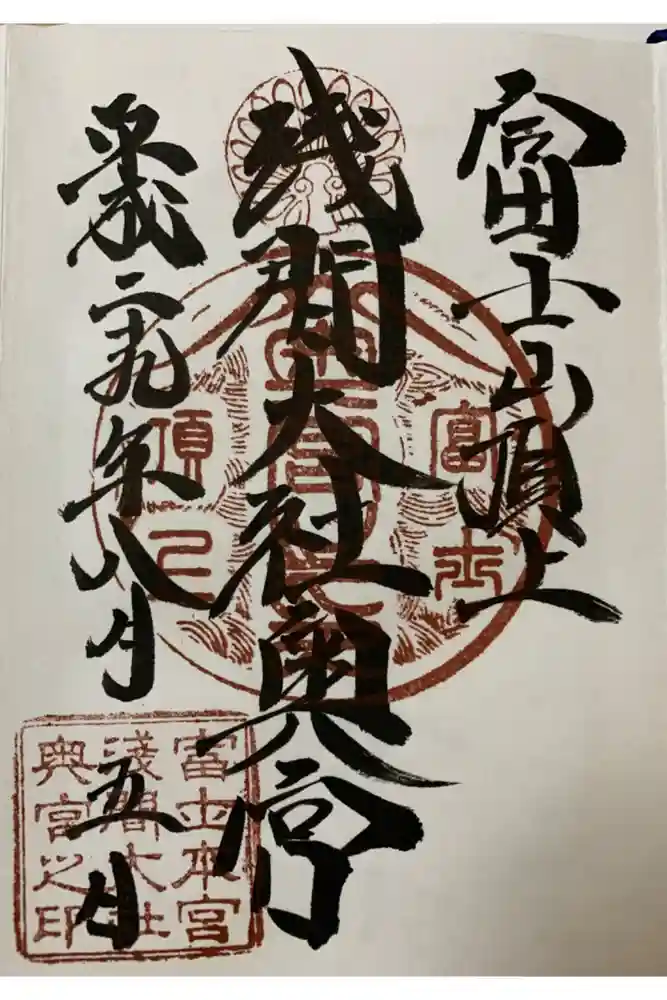 富士山頂上
淺間大社奥宮
平成二十九年八月五日
富士
頂上
富士本宮
淺間大社
奥宮之印